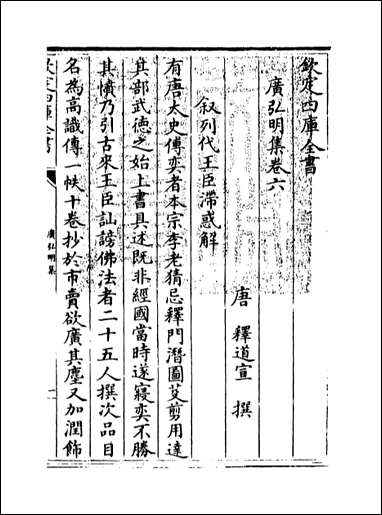 欽定四庫全書
廣弘明集卷六
唐 釋道宣 撰
叙列代王臣滯惑解
有唐太史傅奕者本宗李老猜忌釋門潛圖芟剪用達
其部武德之始上書具述既非經國當時遂寢奕不勝
其憤乃引古來王臣訕謗佛法者二十五人撰次品目
名為高識傳一帙十卷抄於市賣欲廣其塵又加潤飾
欽定四庫全書
廣弘明集
一